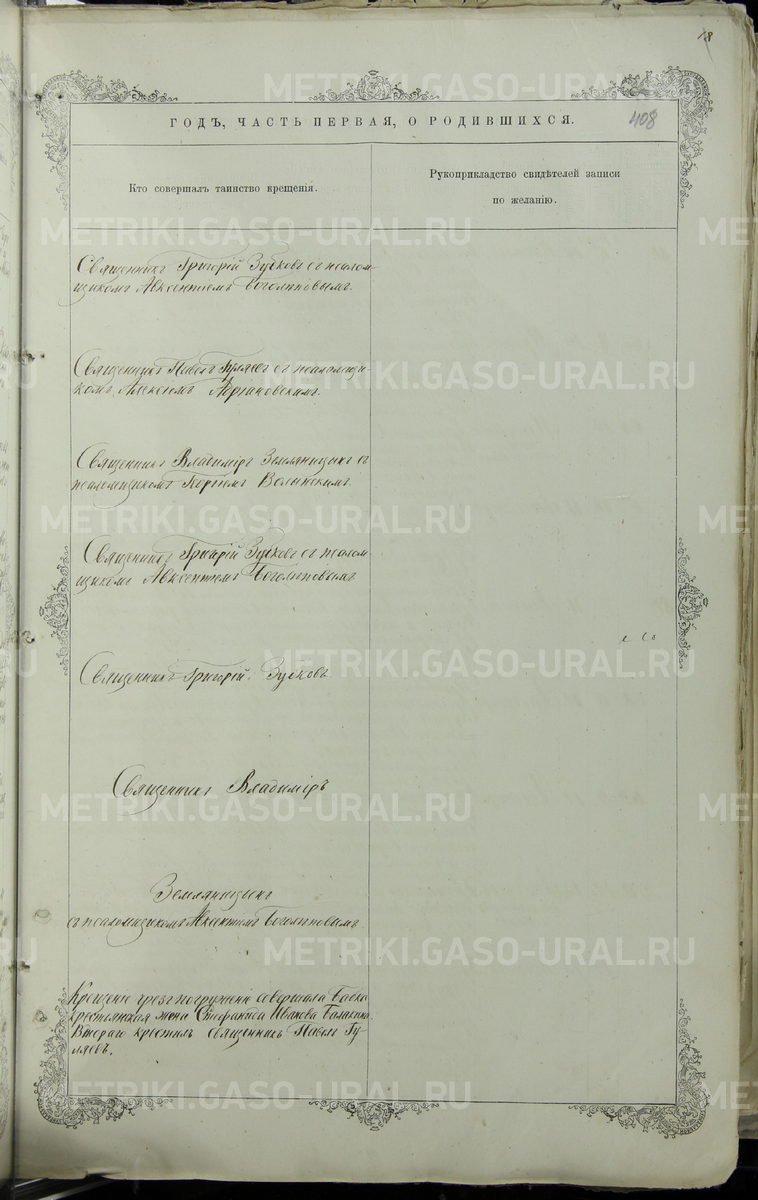 18
408
ГОДЪ, ЧАСТЬ ПЕРВАЯ, О РОДИВШИХСЯ.
Кто совершалъ таинство крещенія.
Рукоприкладство свидѣтелей записи
по желанію.
Священникъ Григорій Зубковъ съ псалом-
щикомъ Авксентіемъ Боголѣповымъ.
Священникъ Павелъ Гуляевъ съ псаломщи-
комъ Алексѣемъ
Священникъ Владиміръ Земляницынъ съ
псаломщикомъ Волынскимъ.
Священникъ Григорій Зубковъ съ псалом-
щикомъ Авксентіемъ Боголѣповымъ
Священникъ Григорій Зубковъ
Священникъ Владиміръ
Земляницынъ
съ псаломщикомъ Авксентіемъ Боголѣповымъ
Крещеніе чрезъ погруженіе совершала бабка
крестьянская жена Стефанида Иванова
Втораго крестилъ священникъ Павелъ Гу-
ляевъ.
METRIKI.GASO-URAL.RU
METRIKI.GASO-URAL.RU
METRIKI.GASO-URAL.RU
METRIKI.GASO-URAL.RU
METRIKI.GASO-URAL.RU
METRIKI.GASO-URAL.RU
METRIKI.GASO-URAL.RU
METRIKI.GASO-URAL.RU